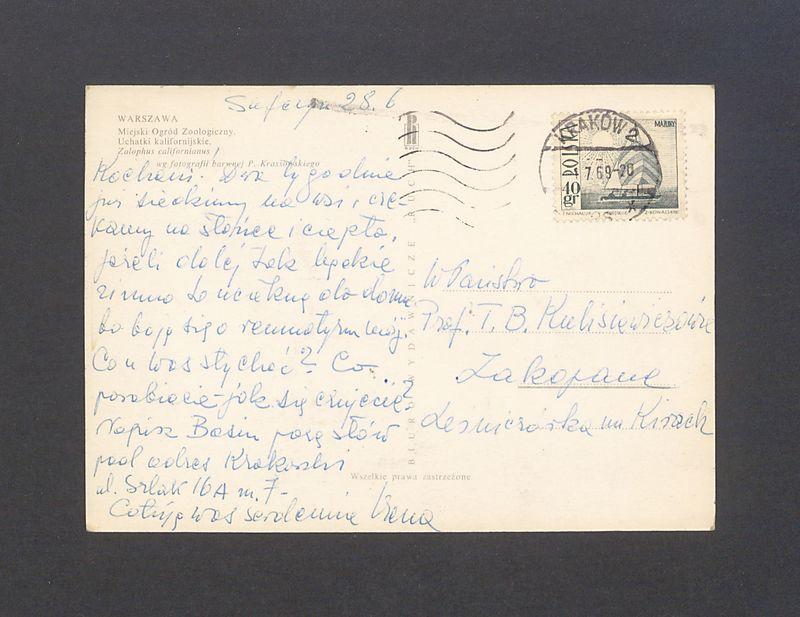 28.6
WARSZAWA
Miejski Ogród Zoologiczny.
Uchatki kalifornijskie.
Zalophus californianus
wg fotografii barwnej P. Krassowskiego
Kochani! Dwa tygodnie
już siedzimy na wsi i cze-
kamy na słońce i ciepło,
jeżeli dalej tak będzie
zimno to ucieknę do domu
bo boję się o reumatyzm mój.
Co u was słychać? Co
porabiacie - jak się czujecie?
Napisz Basiu parę słów
pod adres Krakowski
ul. Szlak 16A m. 7-
Całuję was serdecznie Irena
BIURO WYDAWNICZE RUCH
Wszelkie prawa zastrzeżone
KRAKÓW 2
7.69-20
POLSKA
40 gr
MAZURY
W Państwo
Prof. T. B. Kulisiewiczowie
Zakopane
Leśniczówka na Kirach